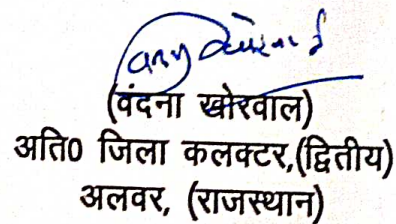 (वंदना खोरवाल)
अति0 जिला कलक्टर,(द्वितीय)
अलवर, (राजस्थान)